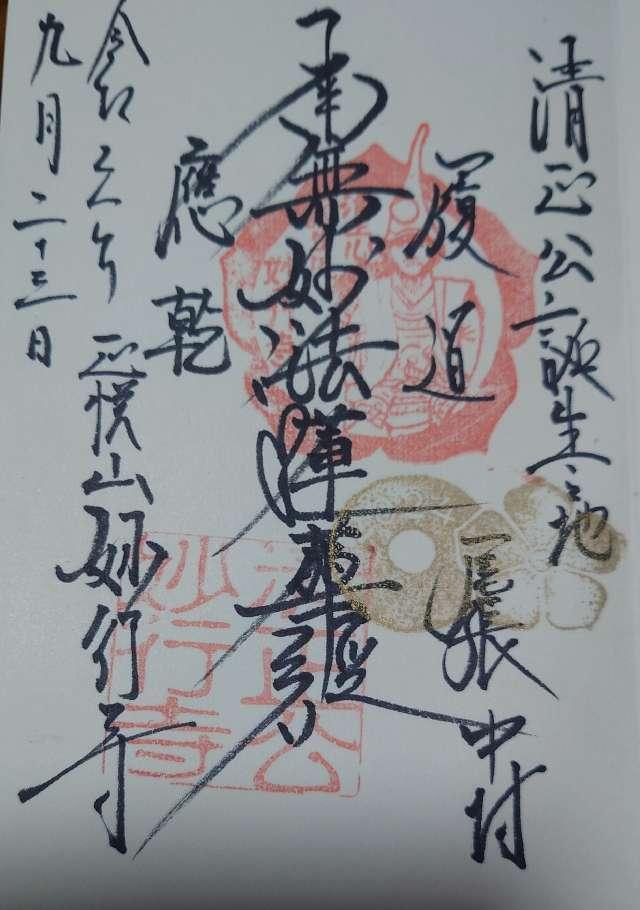 清正公誕生之地
履道
尾張中村
南無妙法蓮華經
應乾
令和六年
正悦山妙行寺
九月二十三日
清正公
妙行寺